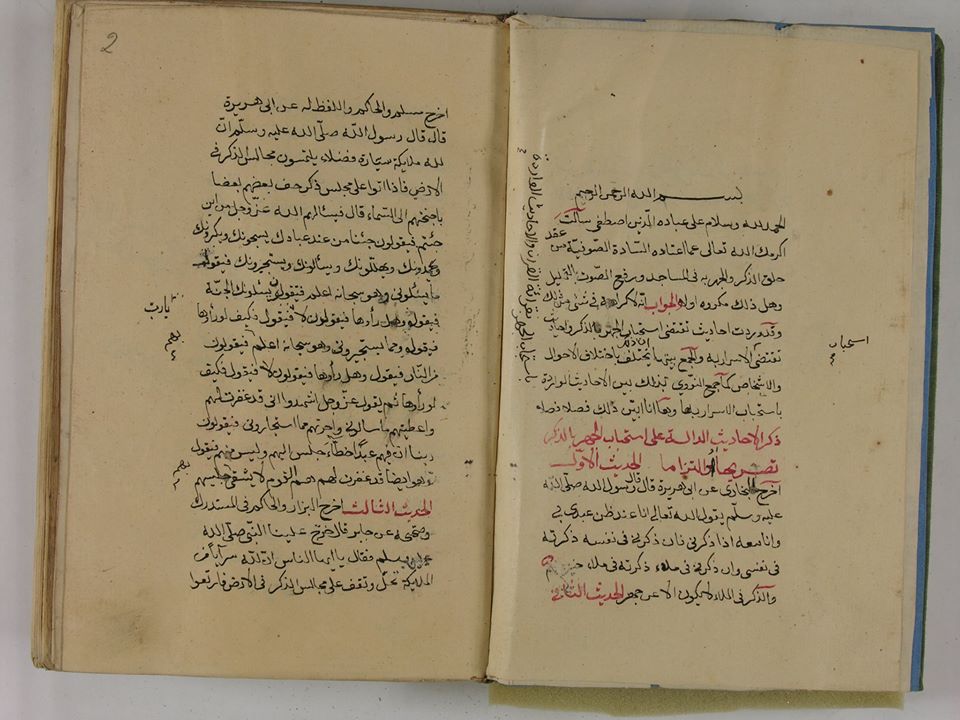 بسم الله الرحمن الرحيم
الحمد لله وسلام على عباده الذين اصطفى سألت
اكرمك الله تعالى عما اعتاده السادة الصوفية من عقد
حلق الذكر والجهر به فى المساجد ورفع الصوت بالتهليل
وهل ذلك مكروه او لا الجواب انه لا كراهة فى شئ من ذلك
وقد وردت احاديث تقتضى استحباب الجهر بالذكر واحاديث
تقتضى الاسرار به والجمع بينهما ان ذلك يختلف باختلاف الاحوال
والاشخاص كما جمع النووي بذلك بين الاحاديث الواردة
باستحباب الاسرار بها وها انا ابين ذلك فصلا فصلا
ذكر الاحاديث الدالة على استحباب الجهر بالذكر
تصريحا او التزاما الحديث الاول
اخرج البخاري عن ابى هريرة قال قال رسول الله صلى الله
عليه وسلم يقول الله تعالى انا عند ظن عبدى بى
وانا معه اذا ذكرنى فان ذكرنى فى نفسه ذكرته
فى نفسى وان ذكرنى فى ملاء ذكرته فى ملاء خير منهم
والذكر فى الملاء لا يكون الا عن جهر الحديث الثانى
باستحباب الجهر بقرائة القرآن والاحاديث الواردة
استحباب
2
اخرج مسلم والحاكم واللفظ له عن ابى هريرة
قال قال رسول الله صلى الله عليه وسلم ان
لله ملايكة سيارة فضلاء يلتمسون مجالس الذكر فى
الارض فاذا اتوا على مجلس ذكر حف بعضهم بعضا
باجنحتهم الى السماء قال فيسئالهم الله عز وجل من اين
جئتم فيقولون جئنا من عند عبادك يسبحونك ويكبرونك
ويحمدونك ويهللونك ويسألونك ويستجيرونك فيقول
ما يسئلونى وهو سبحانه اعلم فيقولون يسئلونك الجنة
فيقول وهل رأوها فيقولون لا فيقول فكيف لو رأوها
فيقول ومما يستجيرونى وهو سبحانه اعلم فيقولون
من النار فيقول وهل رأوها فيقولون لا فيقول فكيف
لو رأوها ثم يقول عز وجل اشهدوا انى قد غفرت لهم
واعطيتهم ما سألونى واجرتهم مما استجارونى فيقولون
ربنا ان فيهم عبدا خطاء جلس اليهم وليس منهم فيقول
وهو ايضا قد غفرت له هم القوم لا يشقى جليسهم
الحديث الثالث اخرج البزار والحاكم فى المستدرك
وصححه عن جابر قال خرج علينا النبى صلى الله
عليه وسلم فقال يا ايها الناس ان لله سرايا من
الملايكة تحل وتقف على مجالس الذكر فى الارض فارتعوا
يا رب